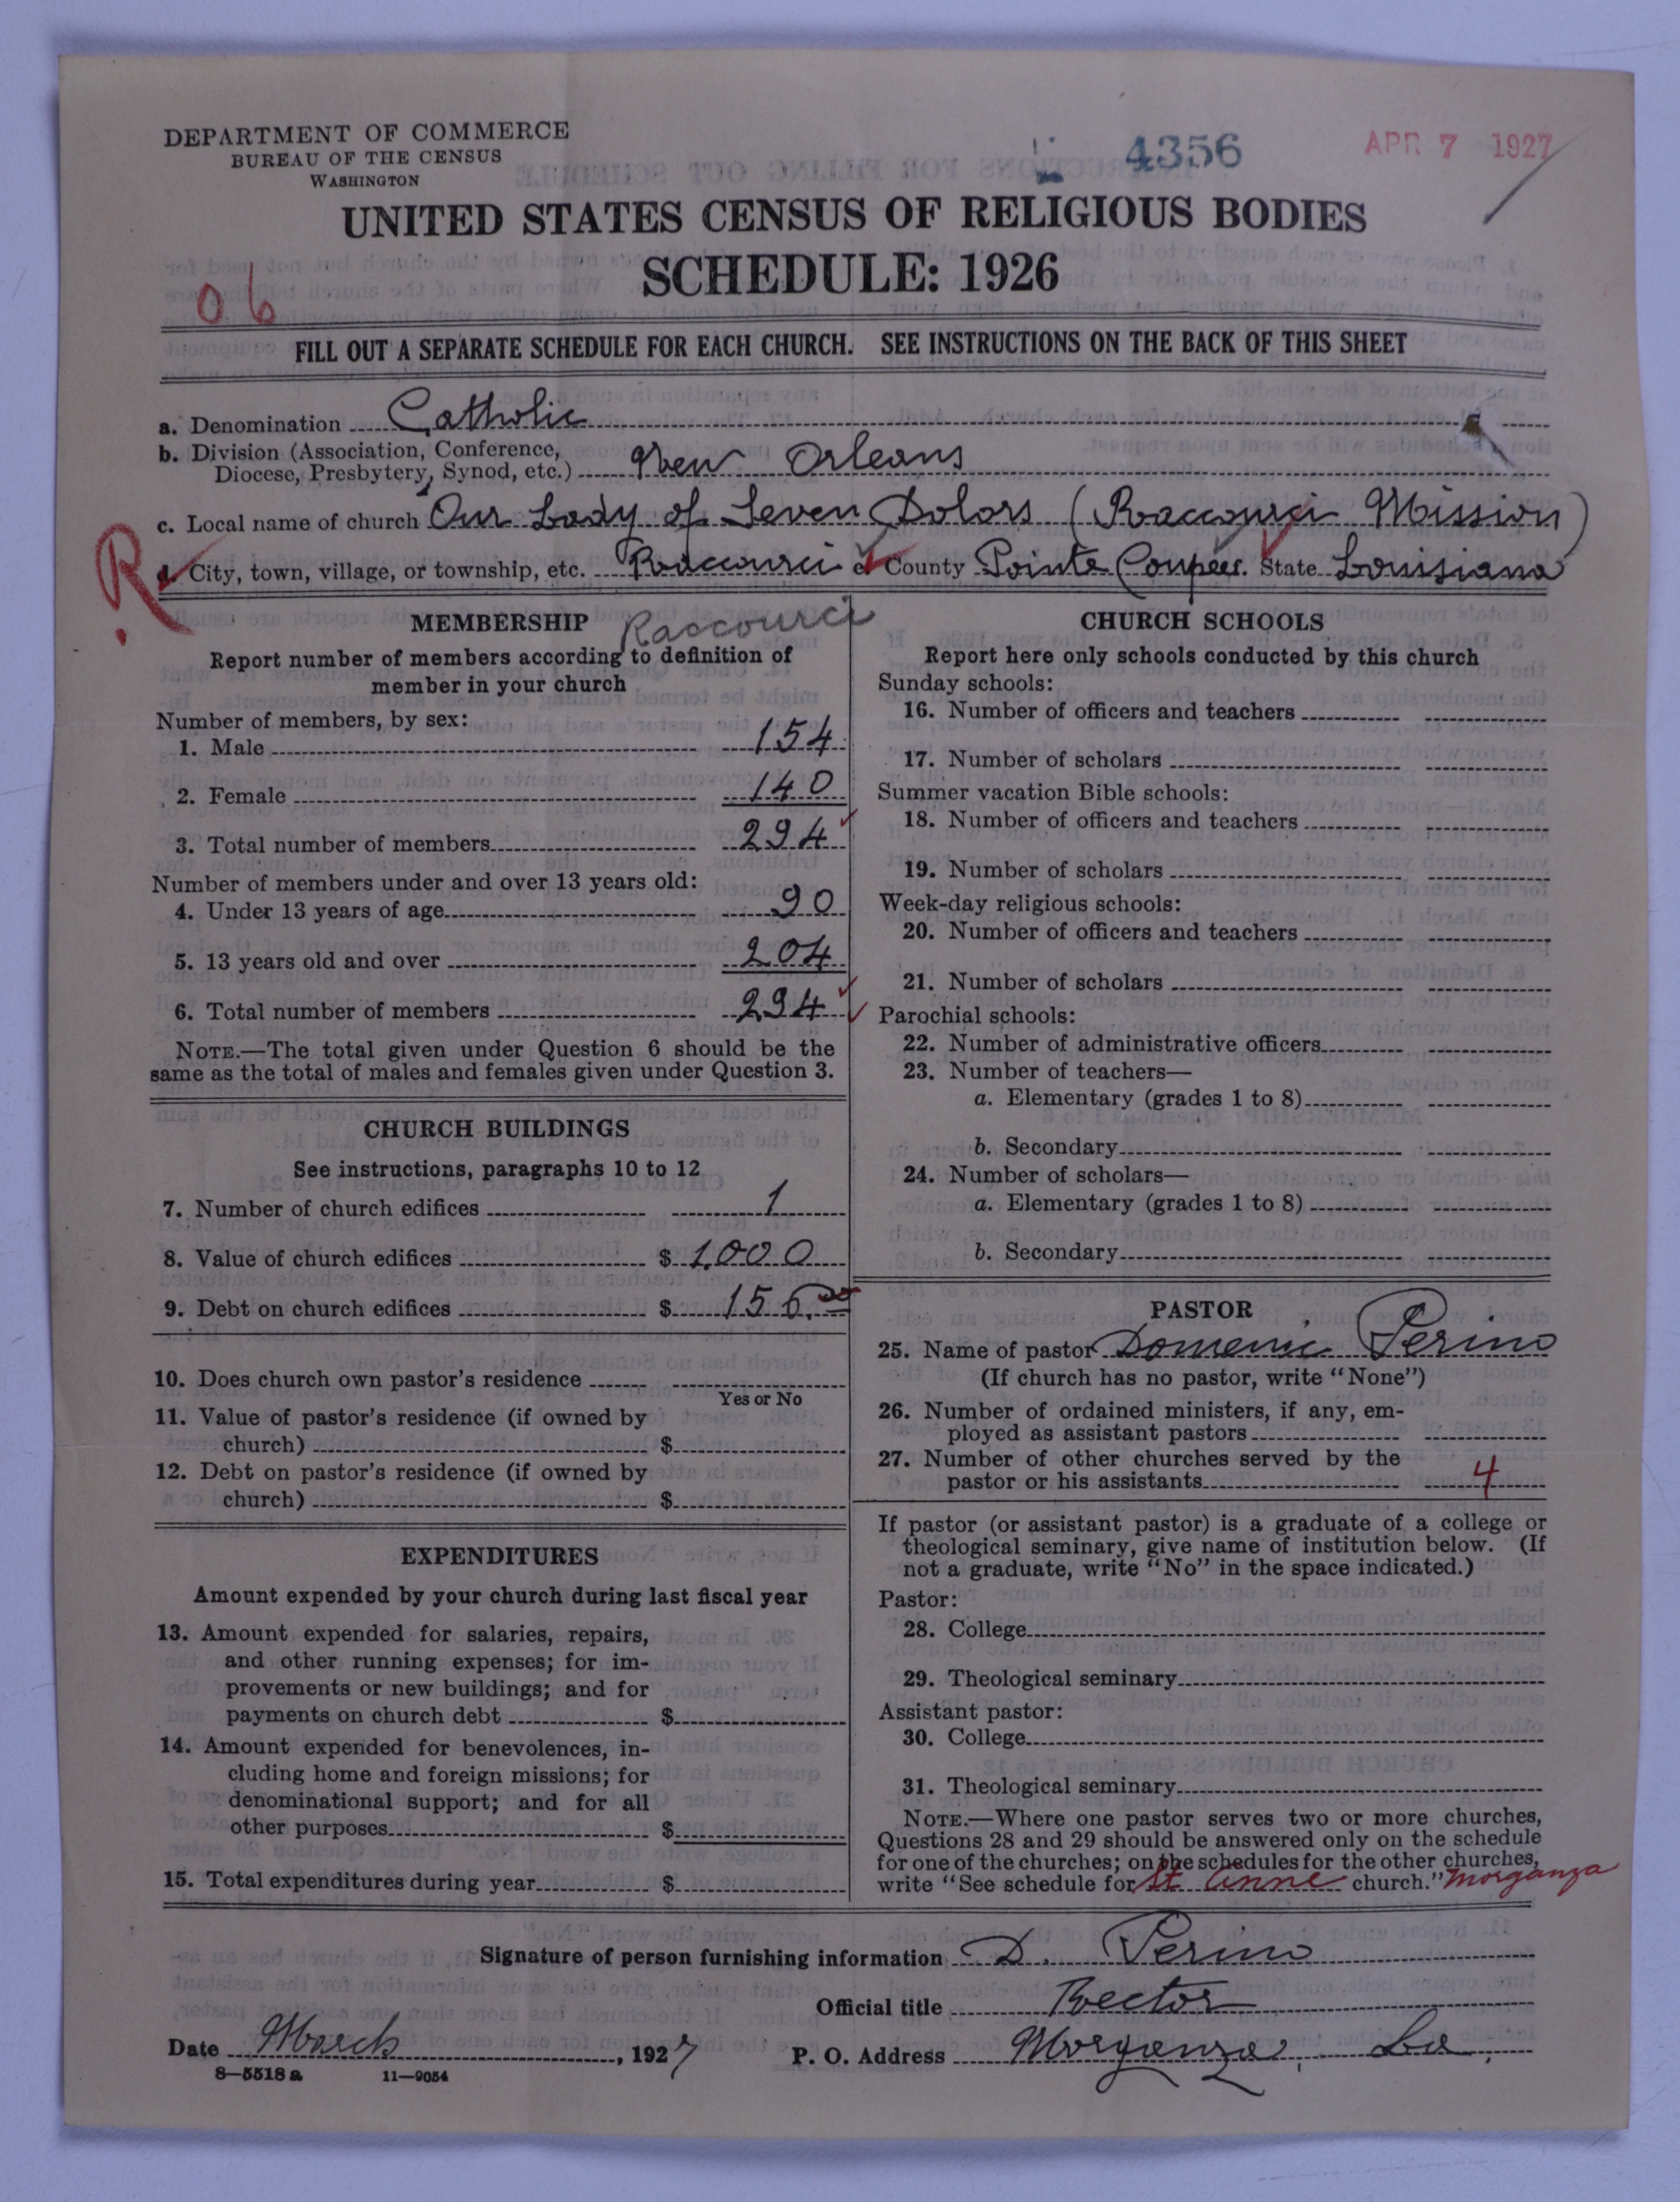 DEPARTMENT OF COMMERCE
BUREAU OF THE CENSUS
WASHINGTON
4356
APR 7 1927
UNITED STATES CENSUS OF RELIGIOUS BODIES
SCHEDULE: 1926
06
FILL OUT A SEPARATE SCHEDULE FOR EACH CHURCH. SEE INSTRUCTIONS ON THE BACK OF THIS SHEET
a. Denomination Catholic
b. Division (Association, Conference,
Diocese, Presbytery, Synod, etc.) New Orleans
c. Local name of church Our Lady of Seven Dolors (Raccourci Mission)
R.
d. City, town, village, or township, etc. Raccourci e. County Pointe Coupee. State Louisiana
Raccourci
MEMBERSHIP
Report number of members according to definition of
member in your church
Number of members, by sex:
1. Male 154
2. Female 140
3. Total number of members 294
Number of members under and over 13 years old:
4. Under 13 years of age 90
5. 13 years old and over 204
6. Total number of members 294
NOTE.—The total given under Question 6 should be the
same as the total of males and females given under Question 3.
CHURCH BUILDINGS
See instructions, paragraphs 10 to 12
7. Number of church edifices 1
8. Value of church edifices $ 1.000
9. Debt on church edifices $ 156.00
10. Does church own pastor's residence
Yes or No
11. Value of pastor's residence (if owned by
church) $
12. Debt on pastor's residence (if owned by
church) $
EXPENDITURES
Amount expended by your church during last fiscal year
13. Amount expended for salaries, repairs,
and other running expenses; for im-
provements or new buildings; and for
payments on church debt $
14. Amount expended for benevolences, in-
cluding home and foreign missions; for
denominational support; and for all
other purposes $
15. Total expenditures during year $
CHURCH SCHOOLS
Report here only schools conducted by this church
Sunday schools:
16. Number of officers and teachers
17. Number of scholars
Summer vacation Bible schools:
18. Number of officers and teachers
19. Number of scholars
Week-day religious schools:
20. Number of officers and teachers
21. Number of scholars
Parochial schools:
22. Number of administrative officers
23. Number of teachers—
a. Elementary (grades 1 to 8)
b. Secondary
24. Number of scholars—
a. Elementary (grades 1 to 8)
b. Secondary
PASTOR
25. Name of pastor Domenic Perino
(If church has no pastor, write "None")
26. Number of ordained ministers, if any, em-
ployed as assistant pastors
27. Number of other churches served by the
pastor or his assistants 4
If pastor (or assistant pastor) is a graduate of a college or
theological seminary, give name of institution below. (If
not a graduate, write "No" in the space indicated.)
Pastor:
28. College
29. Theological seminary
Assistant pastor:
30. College
31. Theological seminary
NOTE.—Where one pastor serves two or more churches,
Questions 28 and 29 should be answered only on the schedule
for one of the churches; on the schedules for the other churches,
write "See schedule for St Anne church." Morganza
Signature of person furnishing information D. Perino
Official title Rector
Date March, 1927 P. O. Address Morganza, La.
8—5518 a 11—9054